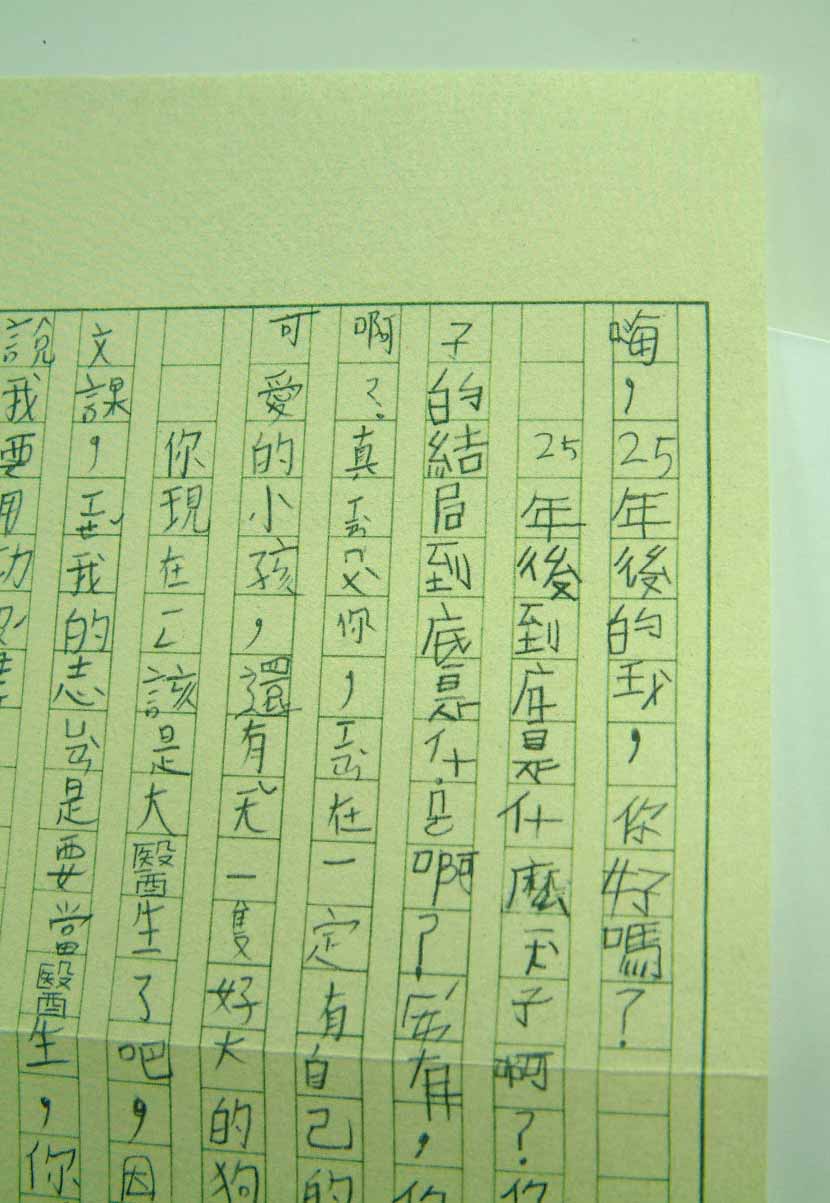 嗨，25年後的我，你好嗎？
25年後到底是什麼子啊？你
子的結局到底是什啊？有，你
啊？真你，在一定有自己的
可愛的小孩，還有一隻好大的狗
你現在ㄧㄥ該是大醫生了吧，因
文課，我的志ㄩㄢ是要當醫生，你
說我要用功